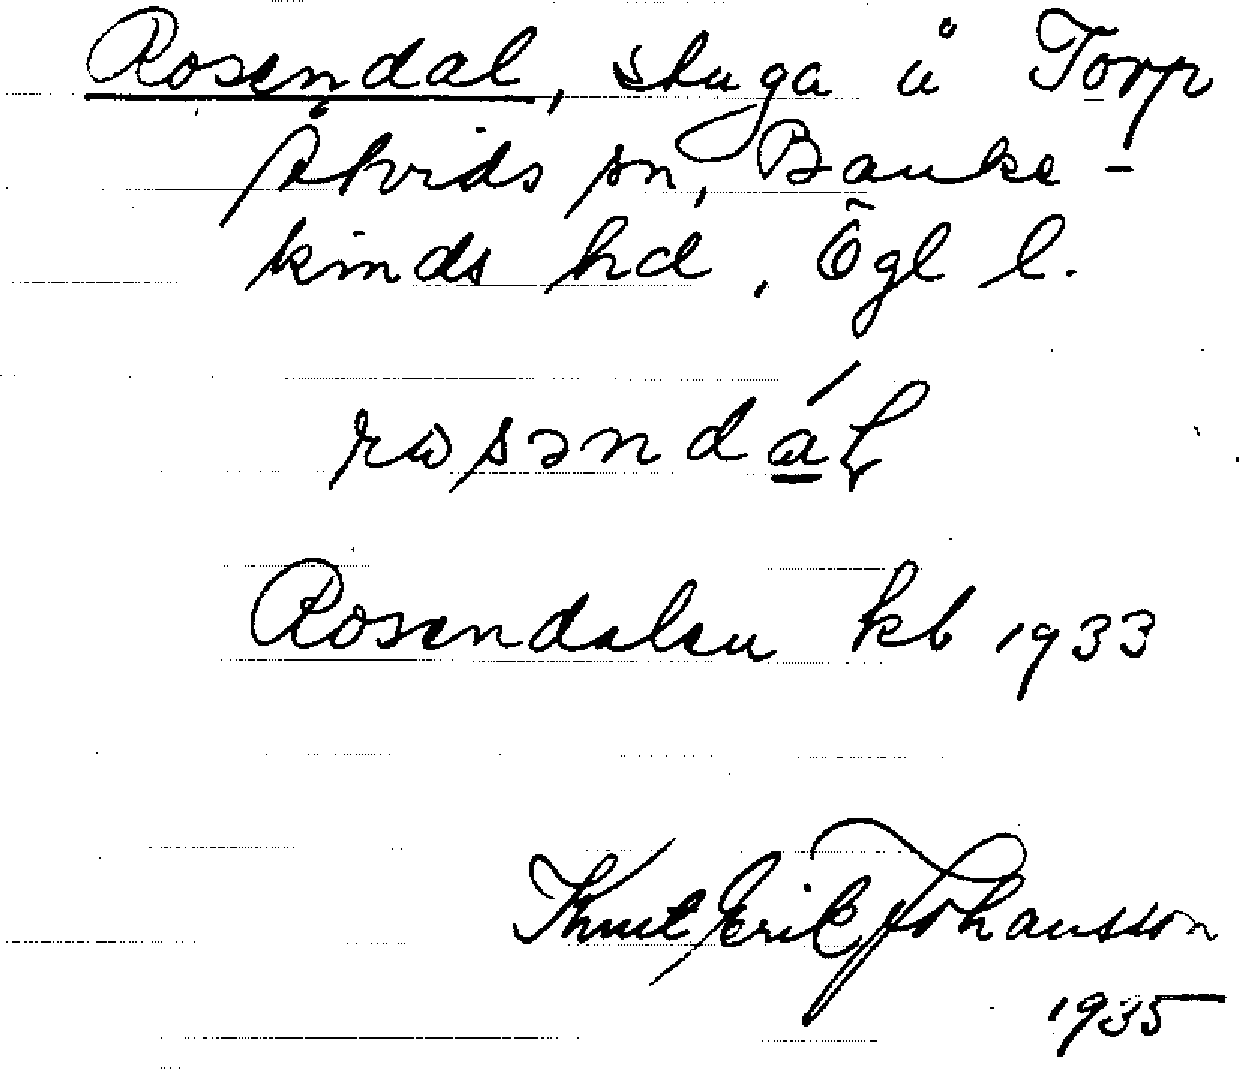 Rosendal, stuga å Torp
Åtvids sn, Banke-
kinds hd, Ögl l.
rosəndáḷ
Rosendalen kb 1933
Knut Erik Johansson
1935